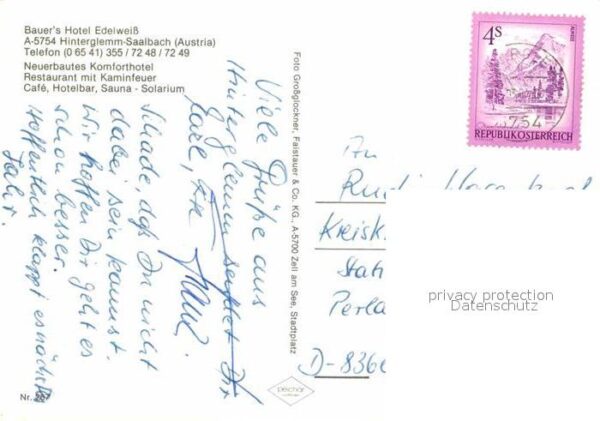 Bauer's Hotel Edelweiß
A-5754 Hinterglemm-Saalbach (Austria)
Telefon (0 65 41) 355 / 72 48 / 72 49
Neuerbautes Komforthotel
Restaurant mit Kaminfeuer
Café, Hotelbar, Sauna - Solarium
Viele Grüße aus
Hinterglemm sendet Dir
Schade, daß Du nicht
dabei sein kannst.
Wir hoffen Dir geht es
schon besser.
Hoffentlich klappt es nächstes
Jahr.
Foto Großglockner, Faistauer & Co. KG., A-5700 Zell am See, Stadtplatz
4S
ALMSEE
754
REPUBLIK ÖSTERREICH
An
Rudi
Kreisk
Stat
Perla
D-8360
privacy protection
Datenschutz
pechar
Nr. 267